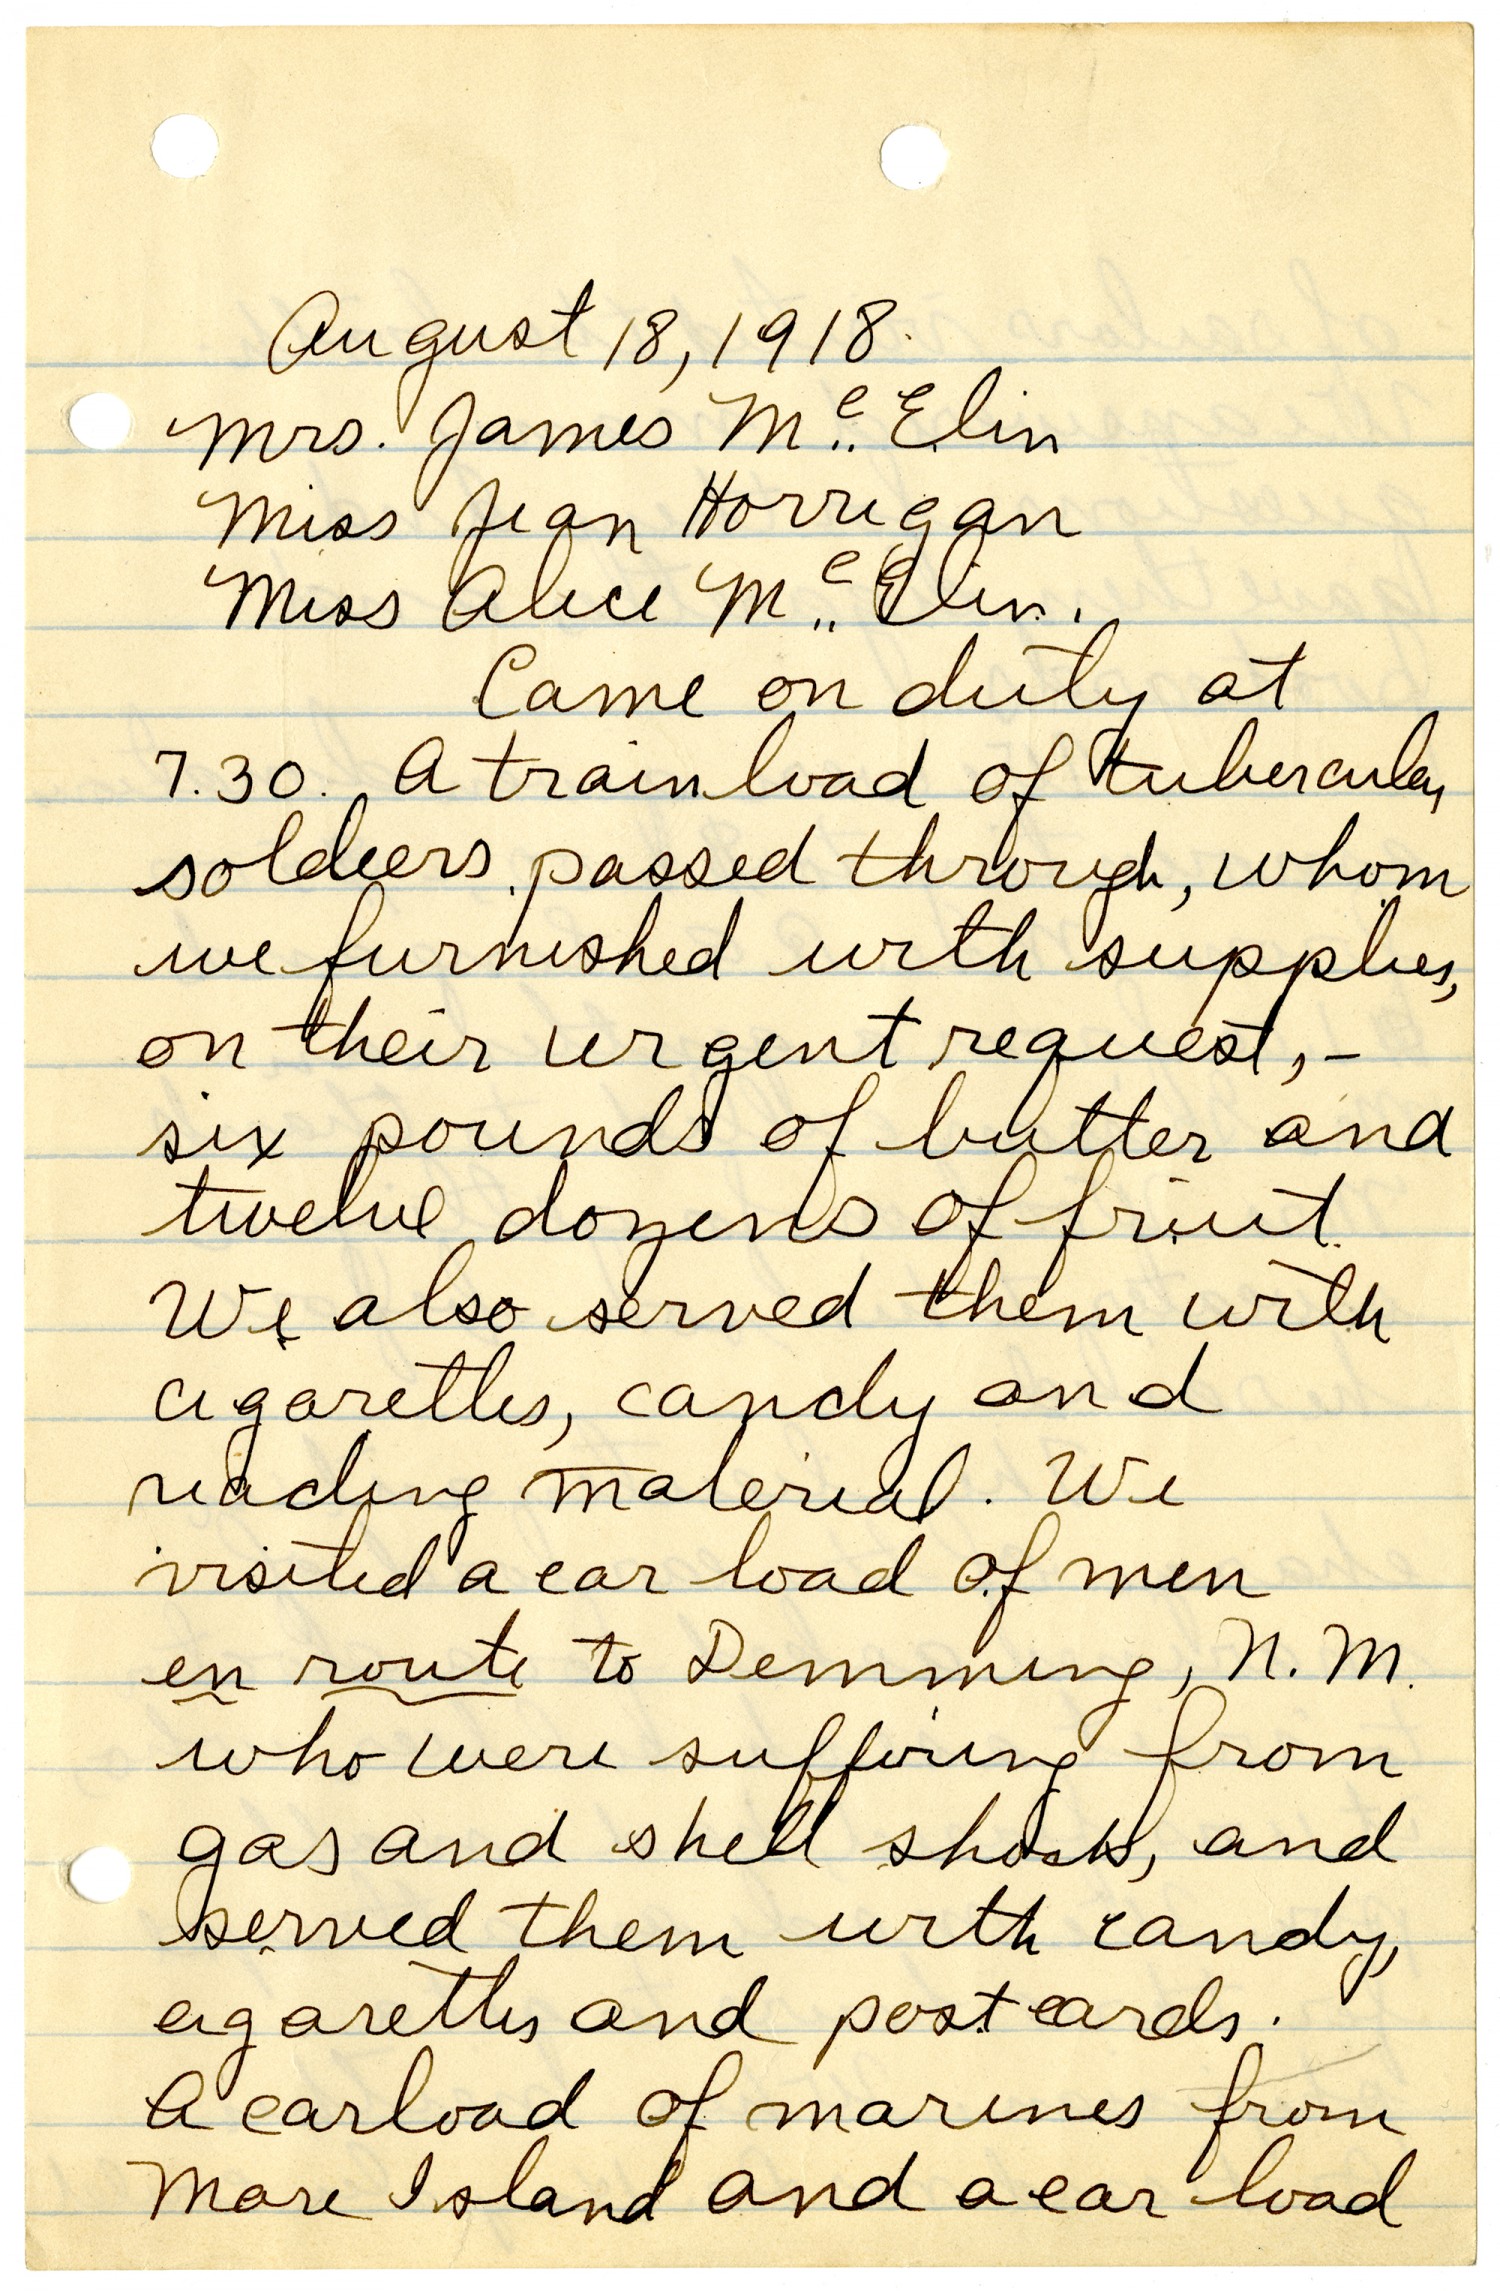 August 18, 1918.
Mrs. James Mc. Elin
Miss Jean Horrigan
Miss Alice Mc. Elin.
Came on duty at
7.30. A trainload of tubercular
soldiers passed through, whom
we furnished with supplies,
on their urgent request, -
six pounds of butter and
twelve dozens of fruit.
We also served them with
cigarettes, candy and
reading material. We
visited a car load of men
en route to Demming, N.M.
who were suffering from
gas and shell shock, and
served them with candy,
cigarettes and postcards.
A carload of marines from
Mare Island and a car load